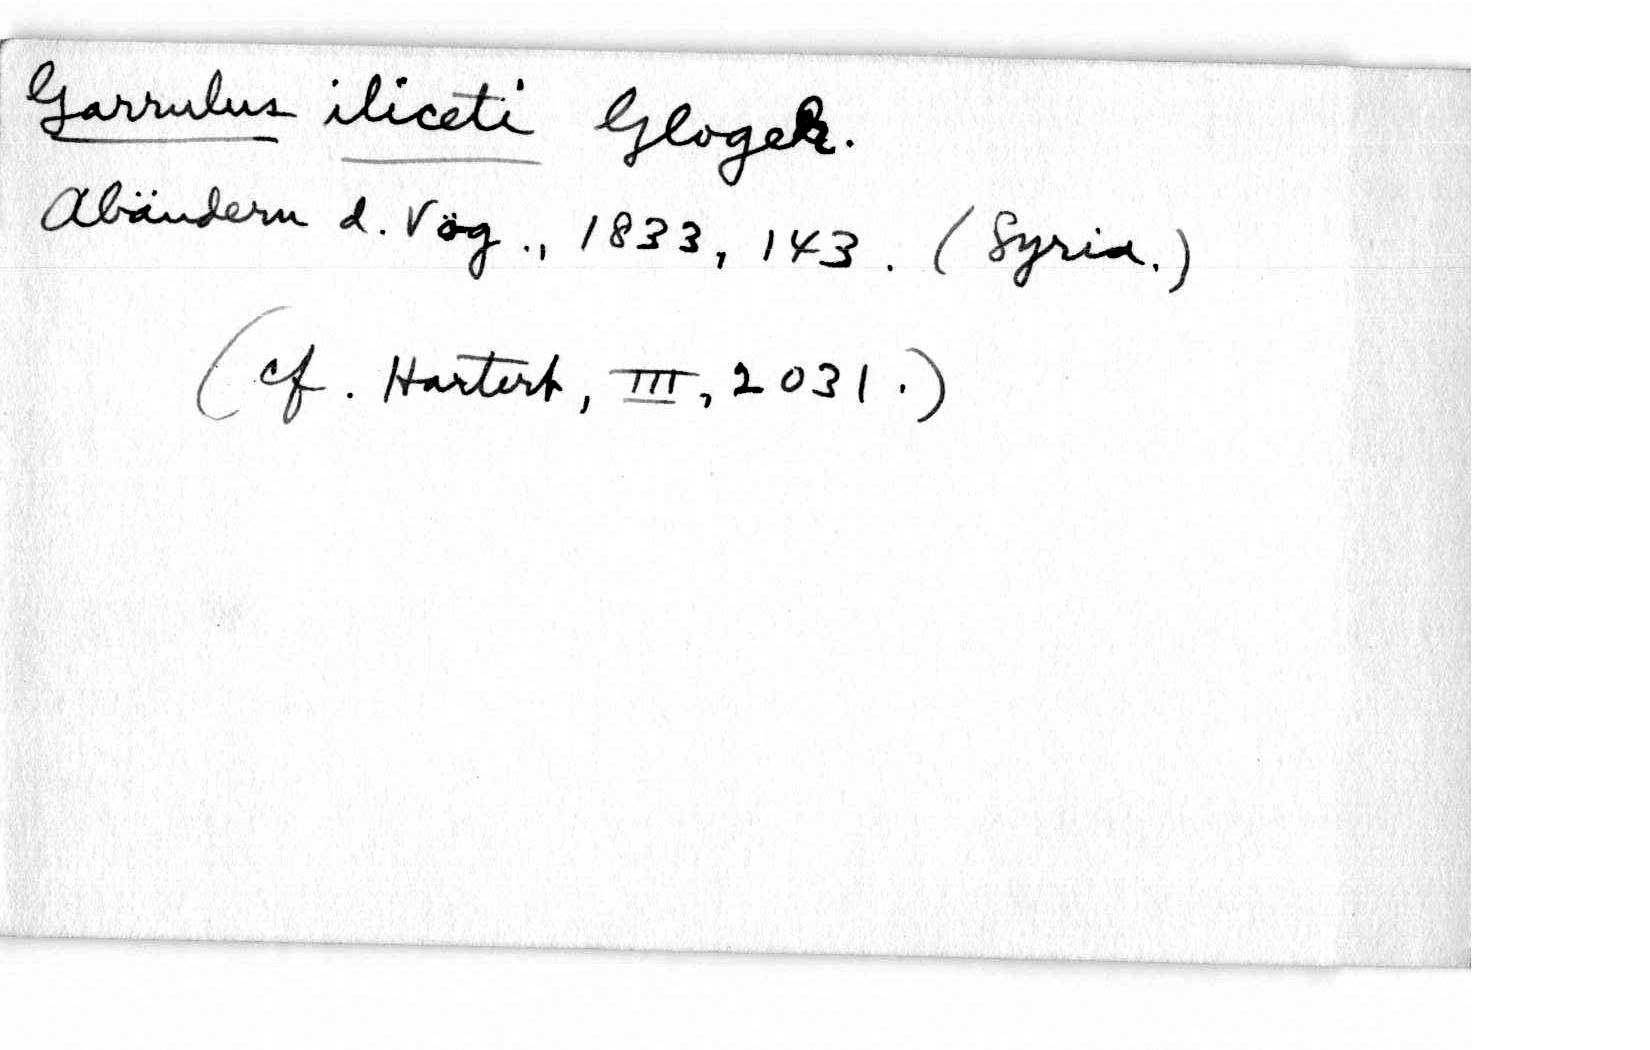 Garrulus iliceti Gloger.
Abändern d. Vög., 1833, 143. (Syria.)
(cf. Hartert, III, 2031.)